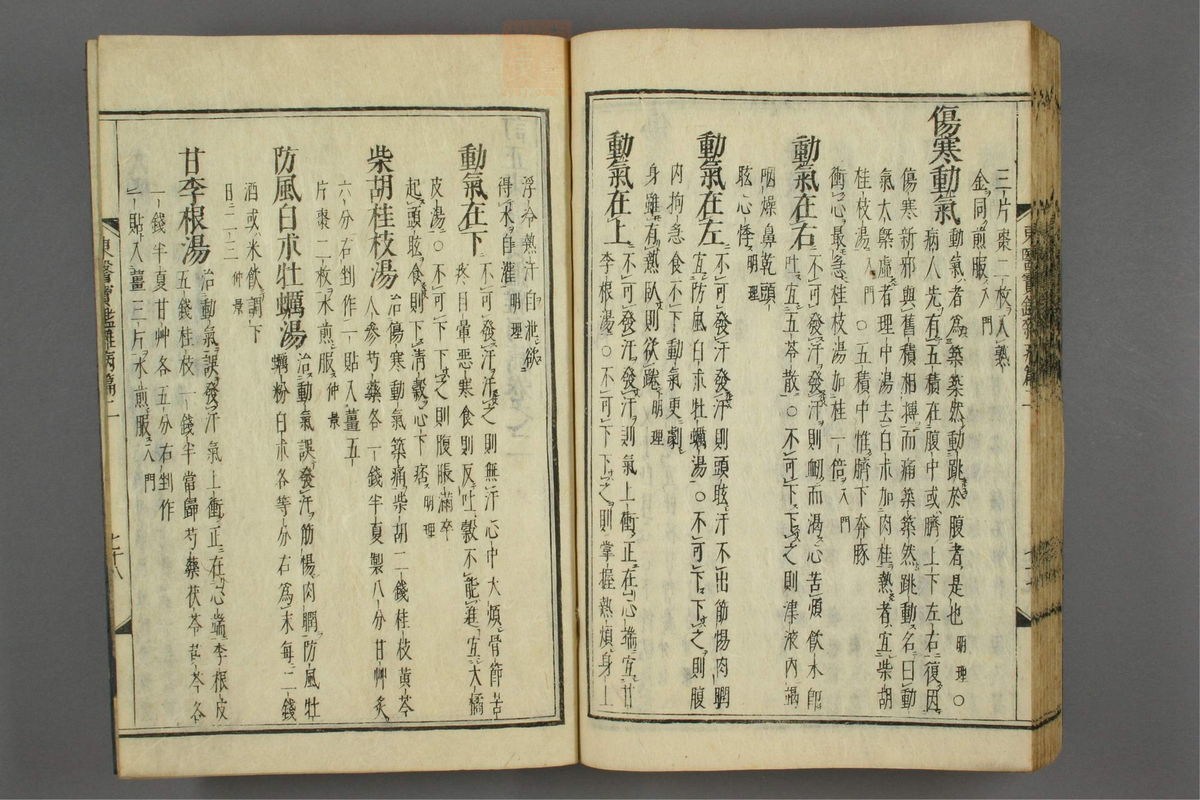 三片棗二枚入熟
金同煎服入門
傷寒動氣
動氣者爲築築然動跳於腹者是也明理○
病人先有五積在腹中或臍上下左右復因
傷寒新邪與舊積相搏而痛築築然跳動名曰動
氣大槩虛者理中湯去白朮加肉桂熱者宜柴胡
桂枝湯入門○五積中惟臍下奔豚
衝心最急桂枝湯加桂一倍入門
動氣在右
不可發汗發汗則衄而渴心苦煩飮水卽
吐宜五苓散○不可下下之則津液內竭
咽燥鼻乾頭
眩心悸明理
動氣在左
不可發汗發汗則頭眩汗不出筋惕肉瞤
宜防風白朮牡蠣湯○不可下下之則腹
內拘急食不下動氣更劇
身雖有熱臥則欲踡明理
動氣在上
不可發汗發汗則氣上衝正在心端宜甘
李根湯○不可下下之則掌握熱煩身上
浮冷熱汗自泄欲
得水自灌明理
動氣在下
不可發汗汗之則無汗心中大煩骨節苦
疼目暈惡寒食則反吐穀不能進宜大橘
皮湯○不可下下之則腹脹滿卒
起頭眩食則下淸穀心下痞明理
柴胡桂枝湯
治傷寒動氣築痛柴胡二錢桂枝黃芩
人參芍藥各一錢半夏製八分甘艸炙
六分右剉作一貼入薑五
片棗二枚水煎服仲景
防風白朮牡蠣湯
治動氣誤發汗筋惕肉瞤防風牡
蠣粉白朮各等分右爲末每二錢
酒或米飮調下
日二三仲景
甘李根湯
治動氣誤發汗氣上衝正在心端李根皮
五錢桂枝一錢半當歸芍藥茯苓黃芩各
一錢半夏甘艸各五分右剉作
一貼入薑三片水煎服入門
東醫寶鑑雜病篇二
七十八